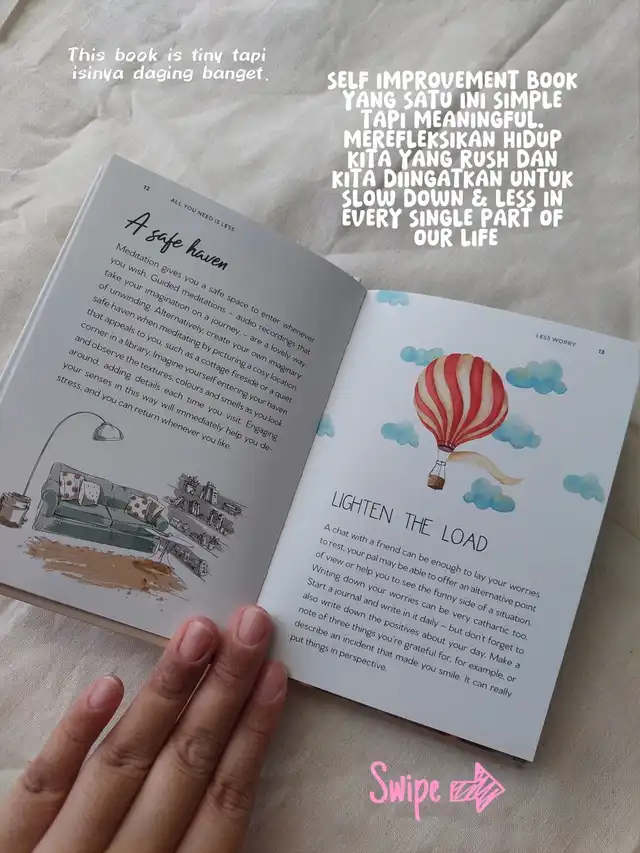 This book is tiny tapi
isinya daging banget.
SELF IMPROVEMENT BOOK
YANG SATU INI SIMPLE
TAPI MEANINGFUL.
MEREFLEKSIKAN HIDUP
KITA YANG RUSH DAN
KITA DIINGATKAN UNTUK
SLOW DOWN & LESS IN
EVERY SINGLE PART OF
OUR LIFE
12
ALL YOU NEED IS LESS
A safe haven
Meditation gives you a safe space to enter whenever
you wish. Guided meditations – audio recordings that
take your imagination on a journey – are a lovely way
of unwinding. Alternatively, create your own imaginary
safe haven when meditating by picturing a cosy location
that appeals to you, such as a cottage fireside or a quiet
corner in a library. Imagine yourself entering your haven
and observe the textures, colours and smells as you look
around, adding details each time you visit. Engaging
your senses in this way will immediately help you de-
stress, and you can return whenever you like.
LESS WORRY
13
LIGHTEN THE LOAD
A chat with a friend can be enough to lay your worries
to rest, your pal may be able to offer an alternative point
of view or help you to see the funny side of a situation.
Writing down your worries can be very cathartic too.
Start a journal and write in it daily – but don't forget to
also write down the positives about your day. Make a
note of three things you're grateful for, for example, or
describe an incident that made you smile. It can really
put things in perspective.
Swipe